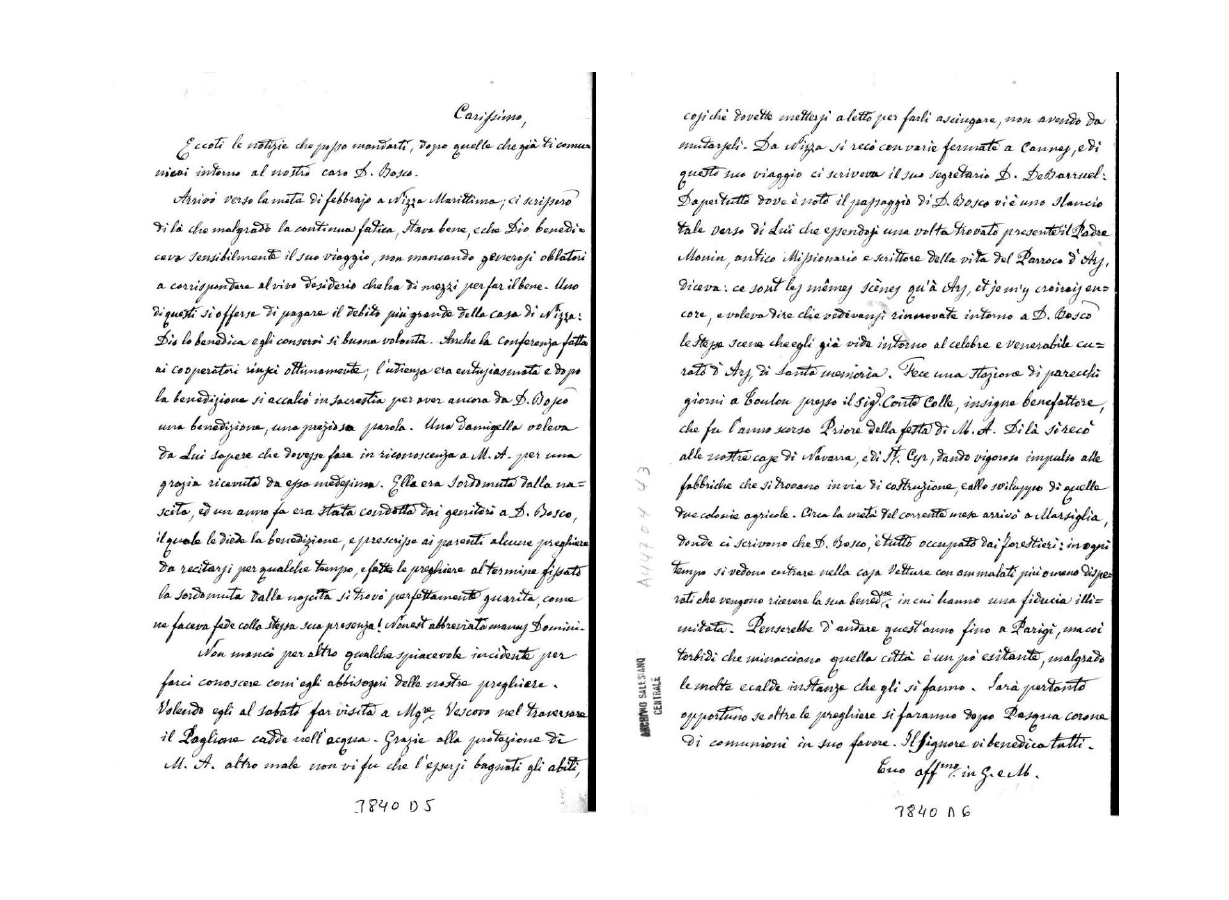 Carissimo,
Eccoti le notizie che posso mandarti, dopo quelle che già ti comu-
nicai intorno al nostro caro D. Bosco.
Arrivò verso la metà di febbrajo a Nizza Marittima; ci scrissero
di là che malgrado la continua fatica, stava bene, e che Dio benedi-
ceva sensibilmente il suo viaggio, non mancando generosi oblatori
a corrispondere al vivo desiderio che ha di mezzi per far il bene. Uno
di questi si offerse di pagare il debito più grande della casa di Nizza:
Dio lo benedica e gli conservi sì buona volontà. Anche la conferenza fatta
ai cooperatori riuscì ottimamente; l'udienza era entusiasmata e dopo
la benedizione si accalcò in sacrestia per aver ancora da D. Bosco
una benedizione, una preziosa parola. Una Damigella voleva
da Lui sapere che dovesse fare in riconoscenza a M. A. per una
grazia ricevuta da essa medesima. Ella era sordomuta dalla na=
scita, ed un anno fa era stata condotta dai genitori a D. Bosco,
il quale le diede la benedizione, e prescrisse ai parenti alcune preghiere
da recitarsi per qualche tempo, e fatte le preghiere al termine fissato
la sordomuta dalla nascita si trovò perfettamente guarita, come
ne faceva fede colla stessa sua presenza! Non est abbreviata manus Domini.
Non mancò per altro qualche spiacevole incidente per
farci conoscere com'egli abbisogni delle nostre preghiere.
Volendo egli al sabato far visita a Mgre Vescovo nel traversare
il Paglione cadde nell'acqua. Grazie alla protezione di
M. A. altro male non vi fu che l'essersi bagnati gli abiti,
7840 D5
cosichè dovette mettersi a letto per farli asciugare, non avendo da
mutarseli. Da Nizza si recò con varie fermate a Cannes, e di
questo suo viaggio ci scriveva il suo segretario D. DeBarruel:
Dapertutto dove è noto il passaggio di D. Bosco vi è uno slancio
tale verso di Lui che essendosi una volta trovato presente il Padre
Monin, antico Missionario e scrittore della vita del Parroco d'Ars,
diceva: ce sont les mêmes scènes qu'à Ars, et je m'y croirais en=
core, e voleva dire che vedevansi rinnovate intorno a D. Bosco
le stesse scene che egli già vide intorno al celebre e venerabile cu=
rato d'Ars, di santa memoria. Fece una stazione di parecchi
giorni a Toulon presso il Sigr. Conte Colle, insigne benefattore,
che fu l'anno scorso Priore della festa di M. A. Di là si recò
alle nostre case di Navarra, e di St. Cyr, dando vigoroso impulso alle
fabbriche che si trovano in via di costruzione, e allo sviluppo di quelle
due colonie agricole. Circa la metà del corrente mese arrivò a Marsiglia,
donde ci scrivono che D. Bosco, è tutto occupato dai forestieri: in ogni
tempo si vedono entrare nella casa Vetture con ammalati più o meno dispe-
rati che vengono ricevere la sua benedne. in cui hanno una fiducia illi=
mitata. Penserebbe d'andare quest'anno fino a Parigi, ma coi
torbidi che minacciano quella città è un pò esitante, malgrado
le molte e calde instanze che gli si fanno. Sarà pertanto
opportuno se oltre le preghiere si faranno dopo Pasqua corone
di comunioni in suo favore. Il Signore vi benedica tutti.
Tuo affmo. in G. e M.
7840 D6
A447 04 43
ARCHIVIO SALESIANO
CENTRALE